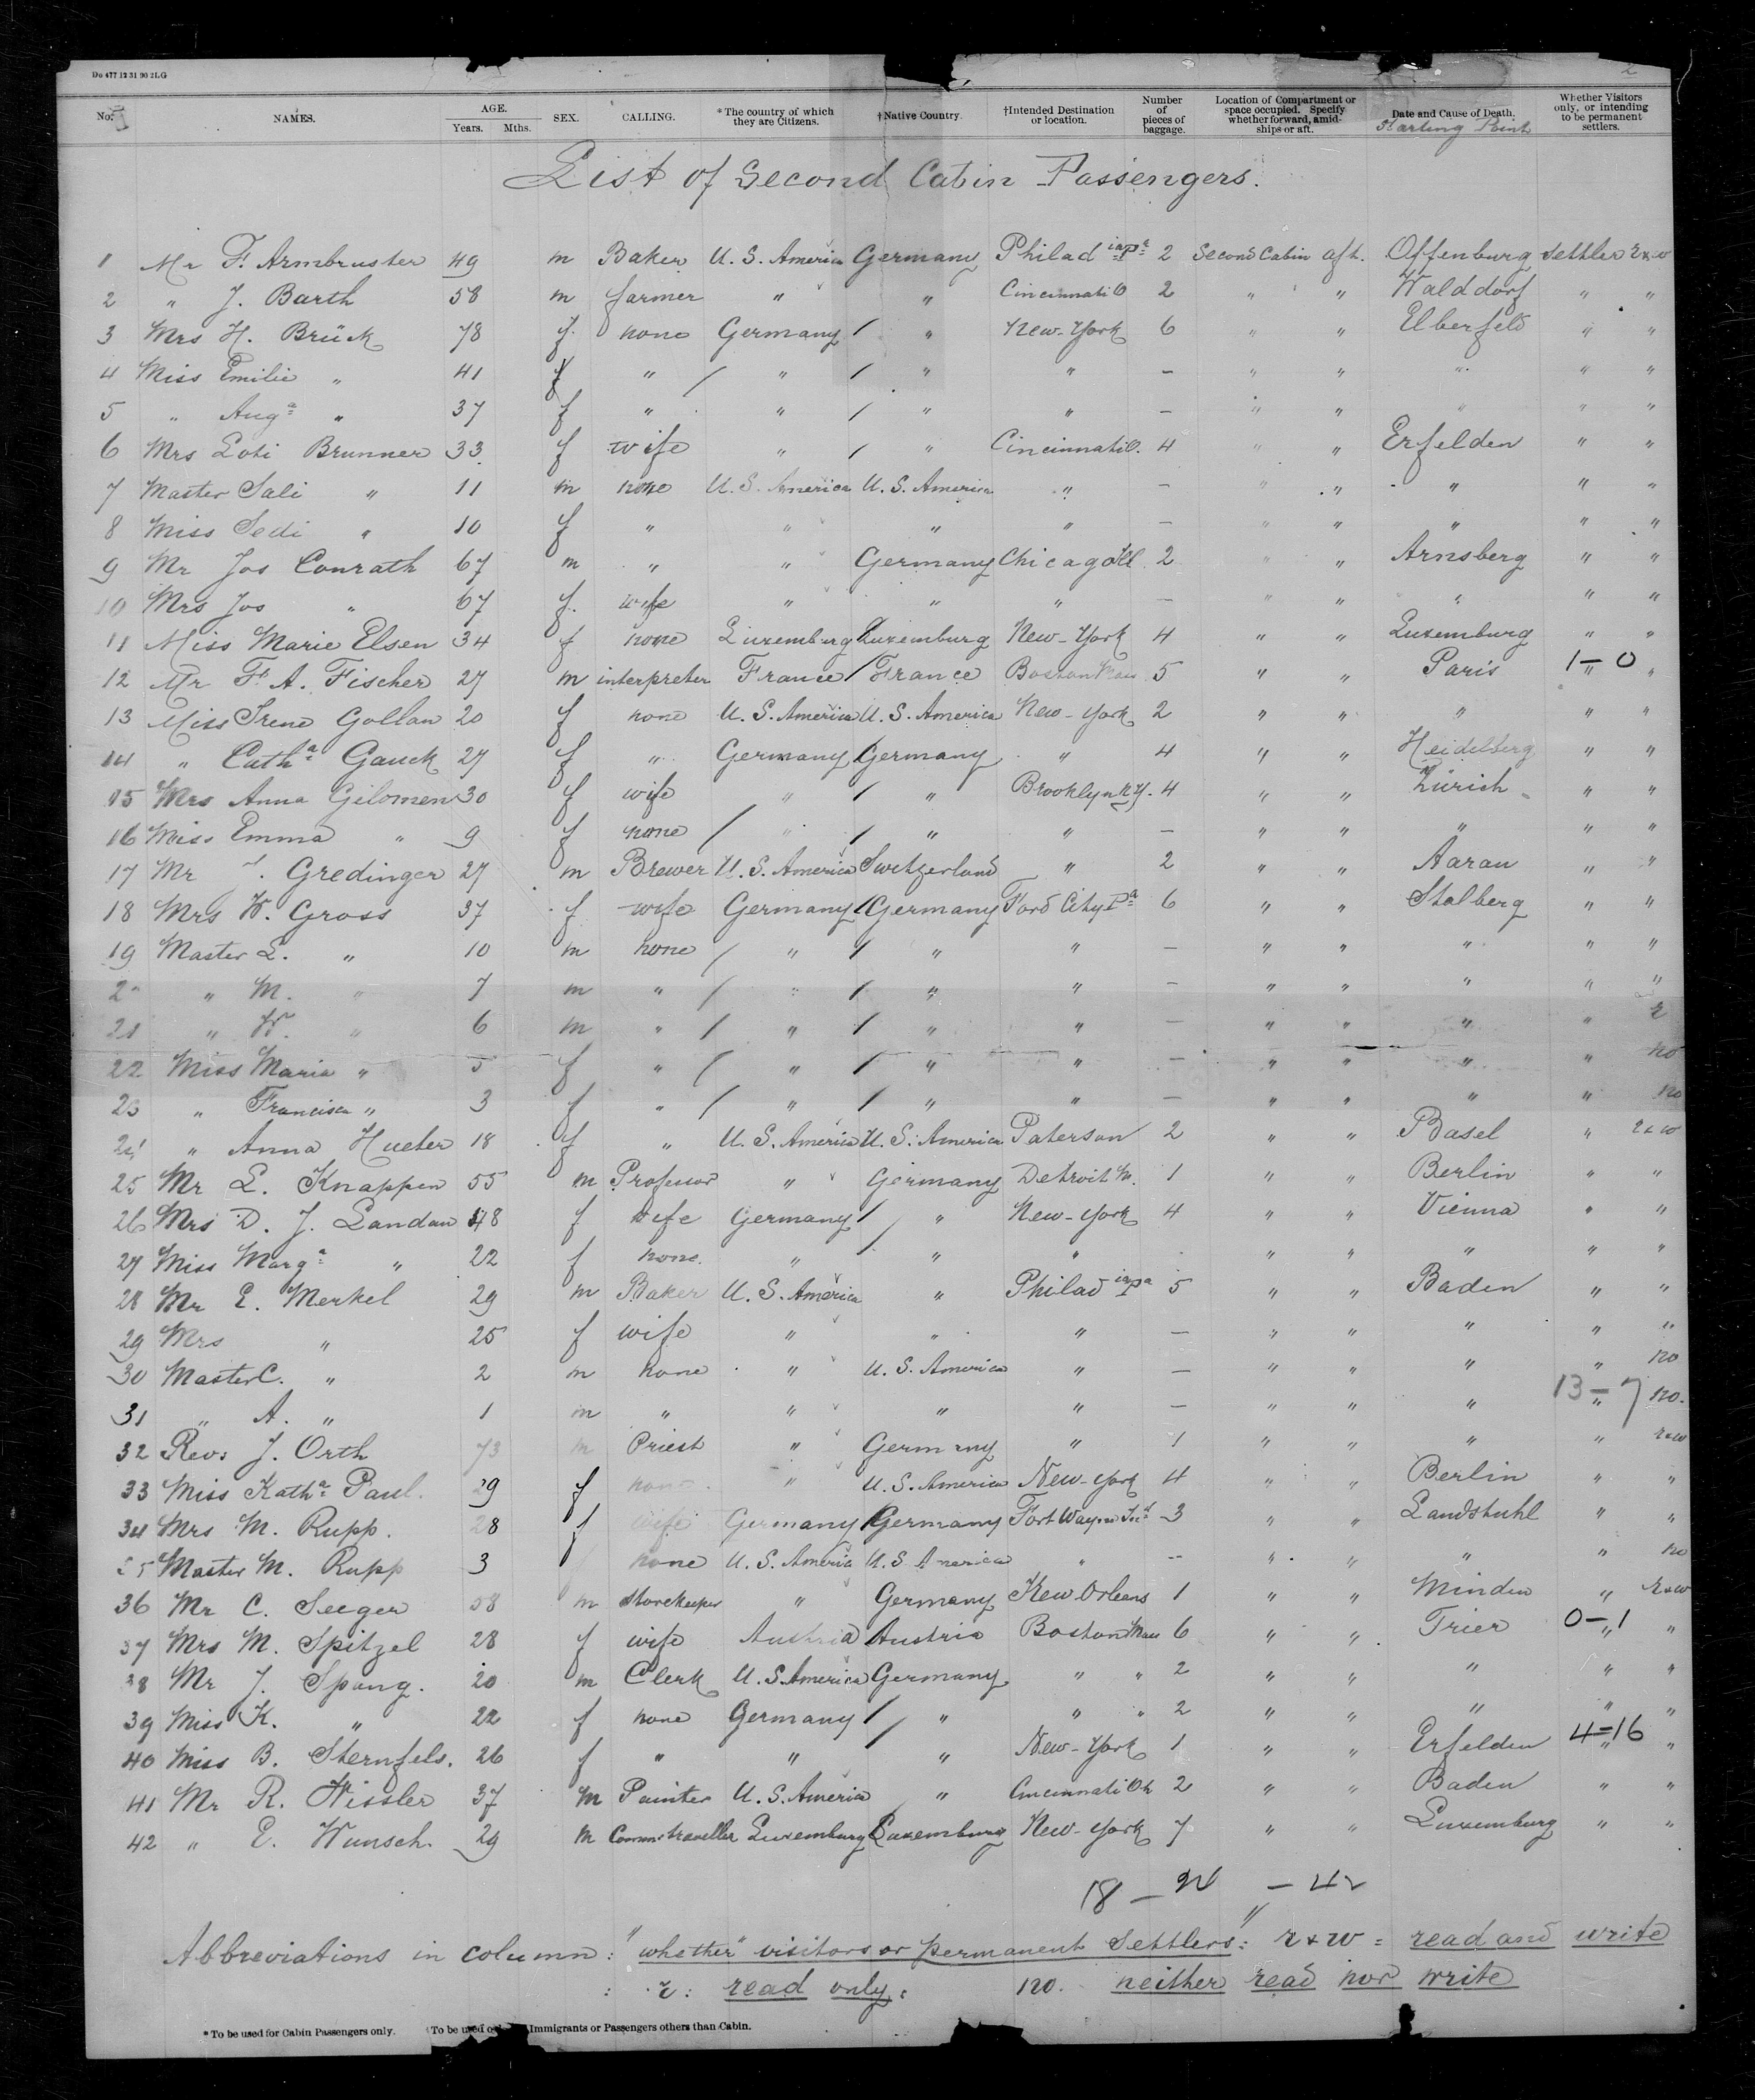 Do 477 12 31 90 2LG
2
No. NAMES. AGE. Years. Mths. SEX. CALLING. *The country of which they are Citizens. †Native Country. †Intended Destination or location. Number of pieces of baggage. Location of Compartment or space occupied. Specify whether forward, amid-ships or aft. Date and Cause of Death. Starting Point Whether Visitors only, or intending to be permanent settlers.
List of Second Cabin Passengers.
1 Mr F. Armbruster 49 m Baker U. S. America Germany Philad ia Pa 2 Second Cabin aft. Offenburg Settler r&w
2 " J. Barth 58 m farmer " " Cincinnati O 2 " " Walddorf " "
3 Mrs H. Brück 78 f. none Germany / " New-York 6 " " Elberfeld " "
4 Miss Emilie " 41 f " / " / " " — " " " " "
5 " Auga " 37 f " " / " " — " " " " "
6 Mrs Loti Brunner 33 f wife " / " Cincinnati O. 4 " " Erfelden " "
7 Master Sali " 11 m none U. S. America U. S. America " — " " " " "
8 Miss Sedi " 10 f " " " " — " " " " "
9 Mr Jos Conrath 67 m " " Germany Chicago Ill 2 " " Arnsberg " "
10 Mrs Jos " 67 f. wife " " " — " " " " "
11 Miss Marie Elsen 34 f none Luxemburg Luxemburg New-York 4 " " Luxemburg " "
12 Mr F. A. Fischer 27 m interpreter France / France Boston Mass 5 " " Paris 1-0 " "
13 Miss Irene Gollan 20 f none U. S. America U. S. America New-York 2 " " " " "
14 " Catha Gauck 27 f " Germany Germany " 4 " " Heidelberg " "
15 Mrs Anna Gilomen 30 f wife " / " Brooklyn N.Y. 4 " " Zürich " "
16 Miss Emma " 9 f none / " / " " — " " " " "
17 Mr . Gredinger 27 m Brewer U. S. America Switzerland " 2 " " Aarau " "
18 Mrs W. Gross 37 f wife Germany / Germany Ford City Pa 6 " " Stolberg " "
19 Master L. " 10 m none / " / " " — " " " " "
20 " M. " 7 m " / " / " " — " " " " "
21 " W. " 6 m " / " / " " — " " " " r
22 Miss Maria " 5 f " / " / " " — " " " " no
23 " Francisca " 3 f " / " / " " — " " " " no
24 " Anna Hueter 18 f " U. S. America U. S. America Paterson 2 " " Basel " r&w
25 Mr L. Knappen 55 m Professor " Germany Detroit M. 1 " " Berlin " "
26 Mrs D. J. Landau 48 f wife Germany / " New-York 4 " " Vienna " "
27 Miss Marga " 22 f none. " / " " " " " " "
28 Mr E. Merkel 29 m Baker U. S. America " Philad ia Pa 5 " " Baden " "
29 Mrs " 25 f wife " " " — " " " " "
30 Master C. " 2 m none " U. S. America " — " " " " no
31 " A. " 1 m " " " " — " " " 13-7 " no.
32 Rev. J. Orth 73 m Priest " Germany " 1 " " " " r&w
33 Miss Katha Paul. 29 f none " U. S. America New-York 4 " " Berlin " "
34 Mrs M. Rupp. 28 f wife Germany / Germany Fort Wayne Ind 3 " " Landstuhl " "
35 Master M. Rupp 3 none U. S. America U. S. America " — " " " " no
36 Mr C. Seeger 58 m storekeeper " Germany New Orleans 1 " " Minden " r&w
37 Mrs M. Spitzel 28 f wife Austria Austria Boston Mass 6 " " Trier 0-1 " "
38 Mr J. Spang. 20 m Clerk U. S. America Germany " " 2 " " " " "
39 Miss K. " 22 f none Germany / " " " 2 " " " " "
40 Miss B. Sternfels. 26 f " " / " New-York 1 " " Erfelden 4=16 " "
41 Mr R. Wissler 37 m Painter U. S. America " Cincinnati Oh 2 " " Baden " "
42 " E. Wunsch. 29 m Comm: traveller Luxemburg Luxemburg New-York 7 " " Luxemburg " "
18 — 24 — 42
Abbreviations in column: "whether" visitors or permanent Settlers": r&w = read and write
: r: read only: no. neither read nor write
*To be used for Cabin Passengers only. †To be used Immigrants or Passengers others than Cabin.